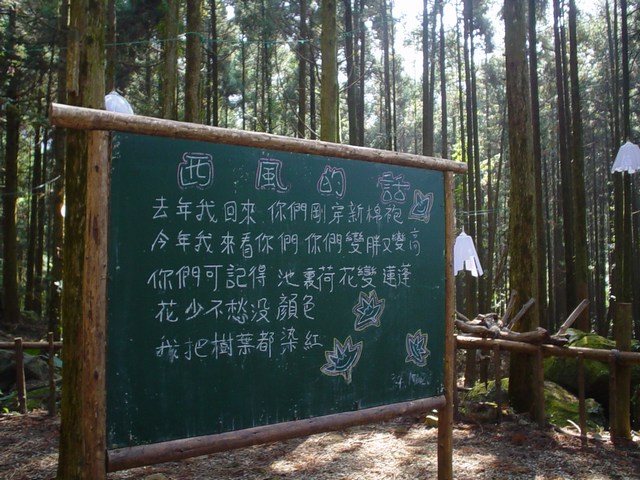 西風的話
去年我回來 你們剛穿新棉袍
今年我來看你們 你們變胖又變高
你們可記得 池裏荷花變蓮蓬
花少不愁没顏色
我把樹葉都染紅